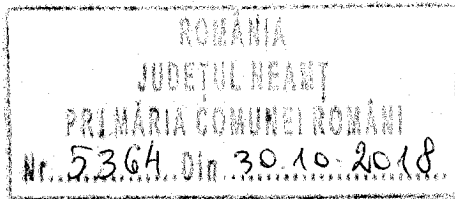 ROMÂNIA
JUDEȚUL NEAMȚ
PRIMĂRIA COMUNEI ROMÂNI
Nr. 5364 Din 30.10.2018